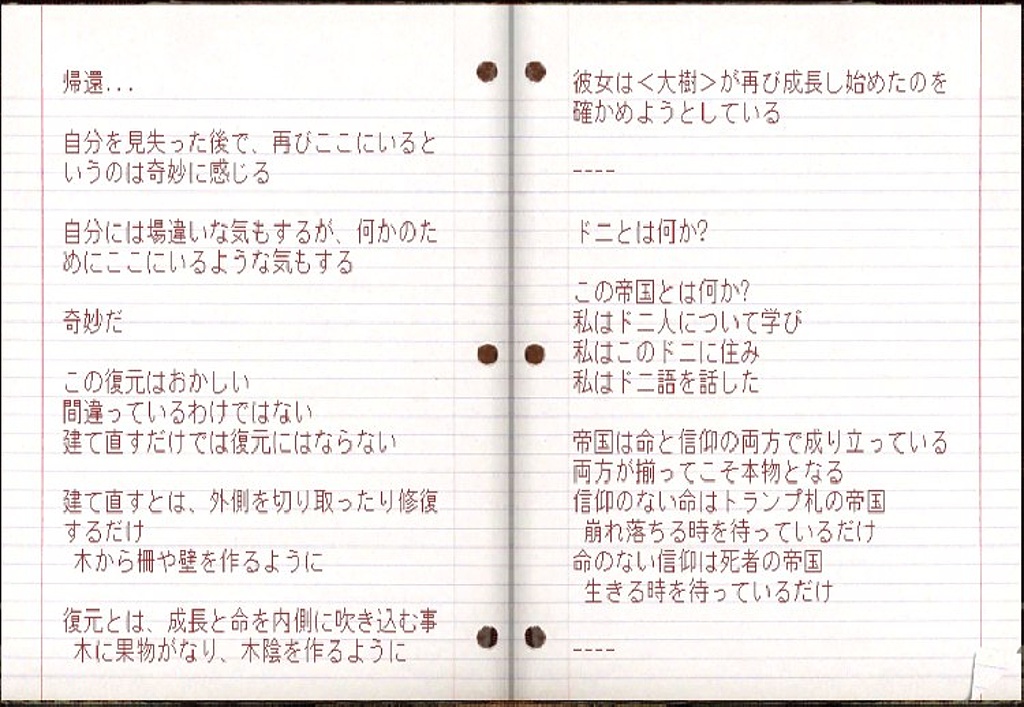 帰還...
自分を見失った後で、再びここにいると
いうのは奇妙に感じる
自分には場違いな気もするが、何かのた
めにここにいるような気もする
奇妙だ
この復元はおかしい
間違っているわけではない
建て直すだけでは復元にはならない
建て直すとは、外側を切り取ったり修復
するだけ
木から柵や壁を作るように
復元とは、成長と命を内側に吹き込む事
木に果物がなり、木陰を作るように
彼女は＜大樹＞が再び成長し始めたのを
確かめようとしている
----
ドニとは何か?
この帝国とは何か?
私はドニ人について学び
私はこのドニに住み
私はドニ語を話した
帝国は命と信仰の両方で成り立っている
両方が揃ってこそ本物となる
信仰のない命はトランプ札の帝国
崩れ落ちる時を待っているだけ
命のない信仰は死者の帝国
生きる時を待っているだけ
----